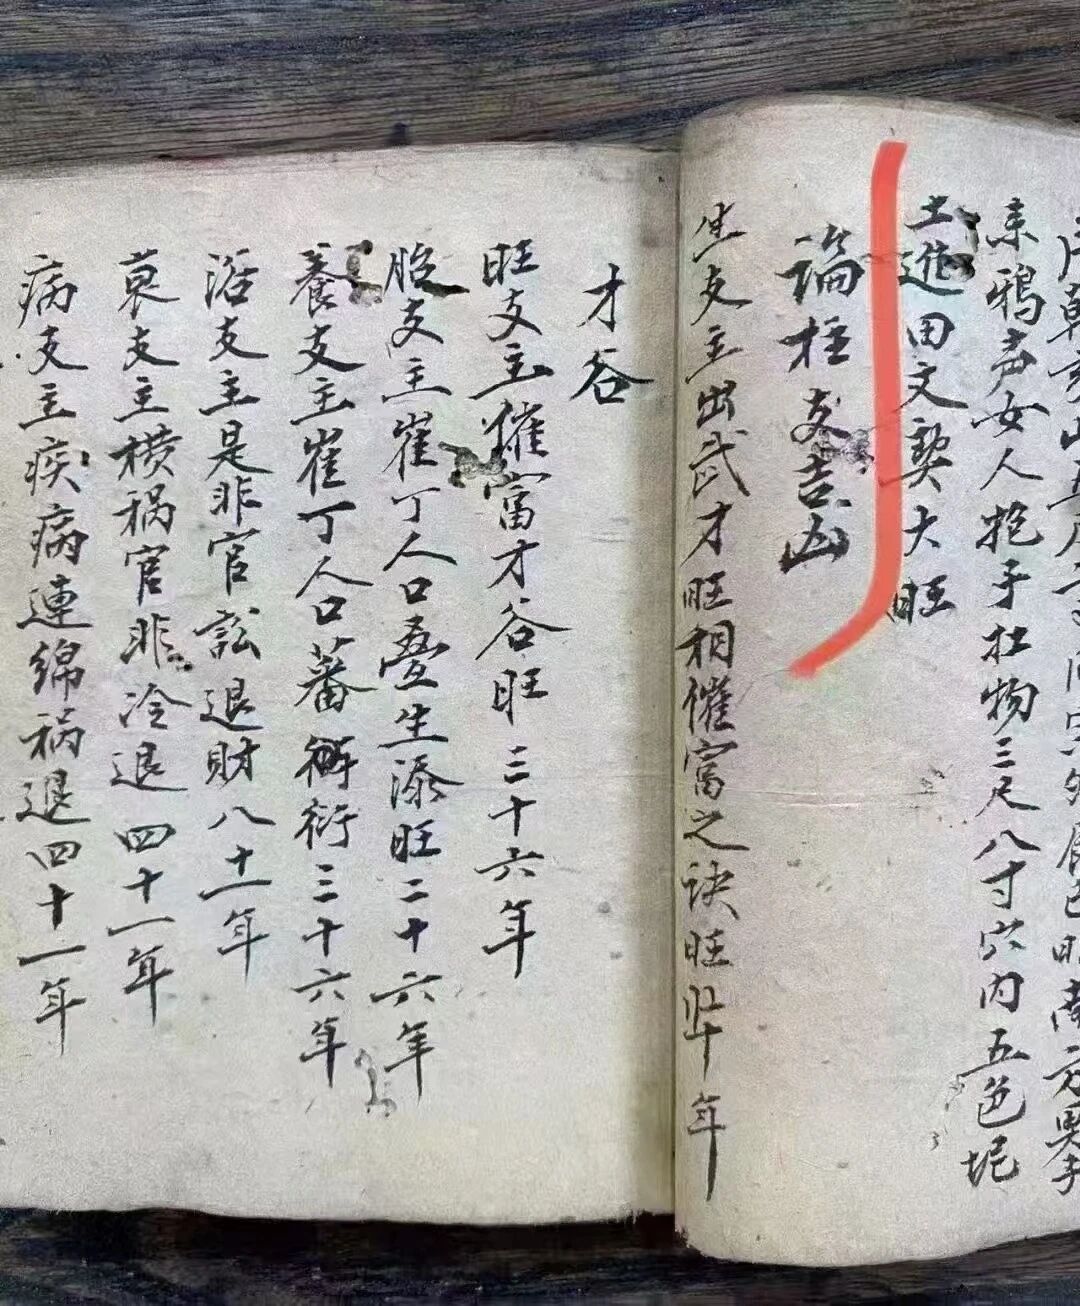 来鴉声女人抱手扛物三尺八寸穴内五色坭
土進田文契大旺
論枉支吉凶
生支主出武才旺相催富之诀旺
年
才谷
旺支主催富才谷旺三十六年
胎支主崔丁人口叠生添旺二十六年
養支主崔丁人口蕃衍三十六年
浴支主是非官訟退財八十一年
衰支主横祸官非冷退四十一年
病支主疾病連綿祸退四十一年